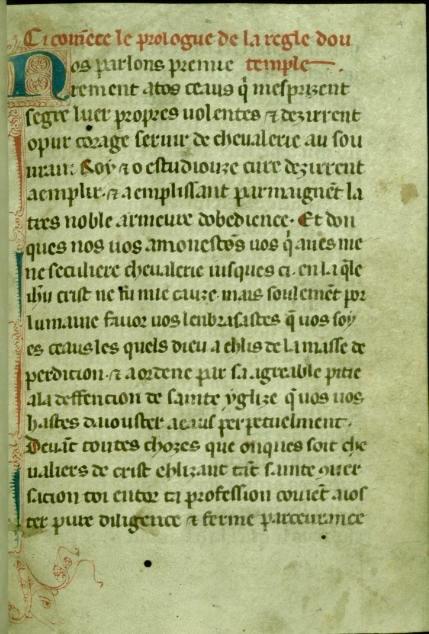 Ci comẽce le prologue de la regle dou
Nos parlons premie temple
rement a tos ceaus q̃ mesprizent
segre luer propres uolentes ⁊ dezirrent
o pur corage seruir de cheualerie au sou
urain Roy ⁊ o estudiouze cure dezirrent
a emplir ⁊ a emplissant parmaignẽt la
tres noble armeure dobedience. Et don
ques nos uos amonestõs uos q̃ aues me
ne seculiere cheualerie iusques ci en la q̃le
ihũ crist ne fu mie cauze mais soulemẽt por
lumaine fauor uos lenbrasastes q̃ uos soy
es ceaus les quels dieu a eslis de la masse de
perdition ⁊ a ordene par sa agreable pitie
a la deffention de sainte yglize q̃ uos uos
hastes daiouster a eaus perpetuelment.
Deuãt toutes chozes que onques soit che
ualiers de crist eslizant tãt sainte ꝯuer
sacion toi entor ta profession couiẽt aios
ter pure diligence ⁊ ferme parceurance